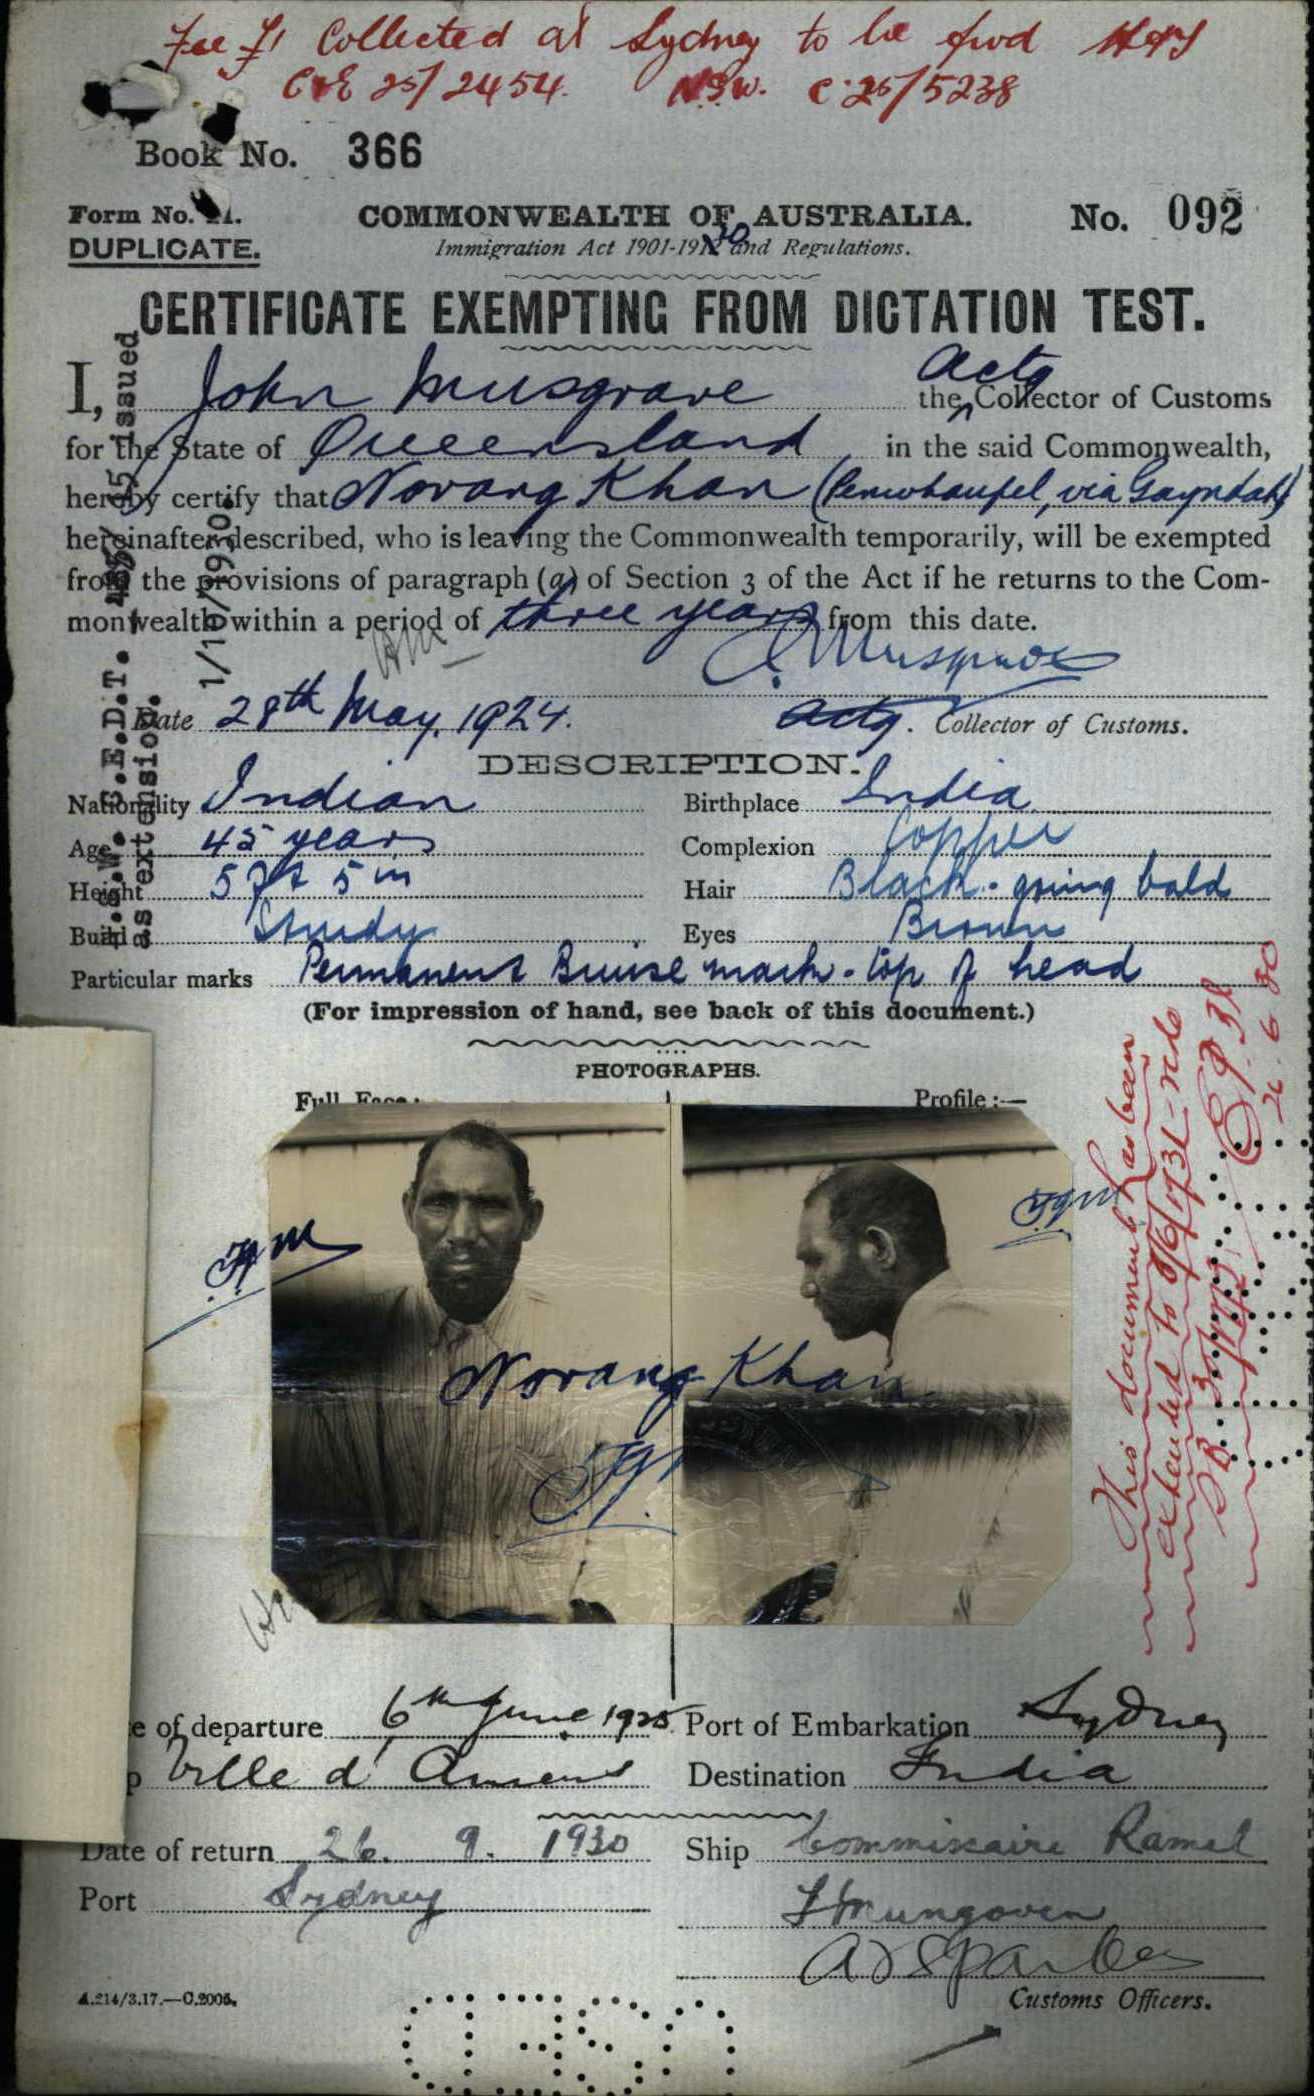 Fee £1 Collected at Sydney to be fwd
C&E 25/2454. N.S.W. C.25/5238
Book No. 366
Form No. 21.
DUPLICATE.
COMMONWEALTH OF AUSTRALIA.
No. 092
Immigration Act 1901-1912 20 and Regulations.
CERTIFICATE EXEMPTING FROM DICTATION TEST.
I, John Musgrave the Actg Collector of Customs
for the State of Queensland in the said Commonwealth,
hereby certify that Norang Khan ( via Gayndah)
hereinafter described, who is leaving the Commonwealth temporarily, will be exempted
from the provisions of paragraph (a) of Section 3 of the Act if he returns to the Com-
monwealth within a period of three years from this date.
J. Musgrave
Date 28th May, 1924.
Actg. Collector of Customs.
N.S.W. C.E.D.T. issued
as extension. 1/10/1930.
DESCRIPTION.
Nationality Indian
Birthplace India
Age 45 years
Complexion Copper
Height 5 ft 5 in
Hair Black - going bald
Build Sturdy
Eyes Brown
Particular marks Permanent Bruise mark - top of head
(For impression of hand, see back of this document.)
PHOTOGRAPHS.
Full Face:
Profile :—
Norang Khan
This document has been
extended to
26.6.30
e of departure 6th June 1925
Port of Embarkation Sydney
p Ville d' Amiens
Destination India
Date of return 26. 9. 1930
Ship Commissaire Ramel
Port Sydney
Customs Officers.
A.214/3.17.—C.2005.